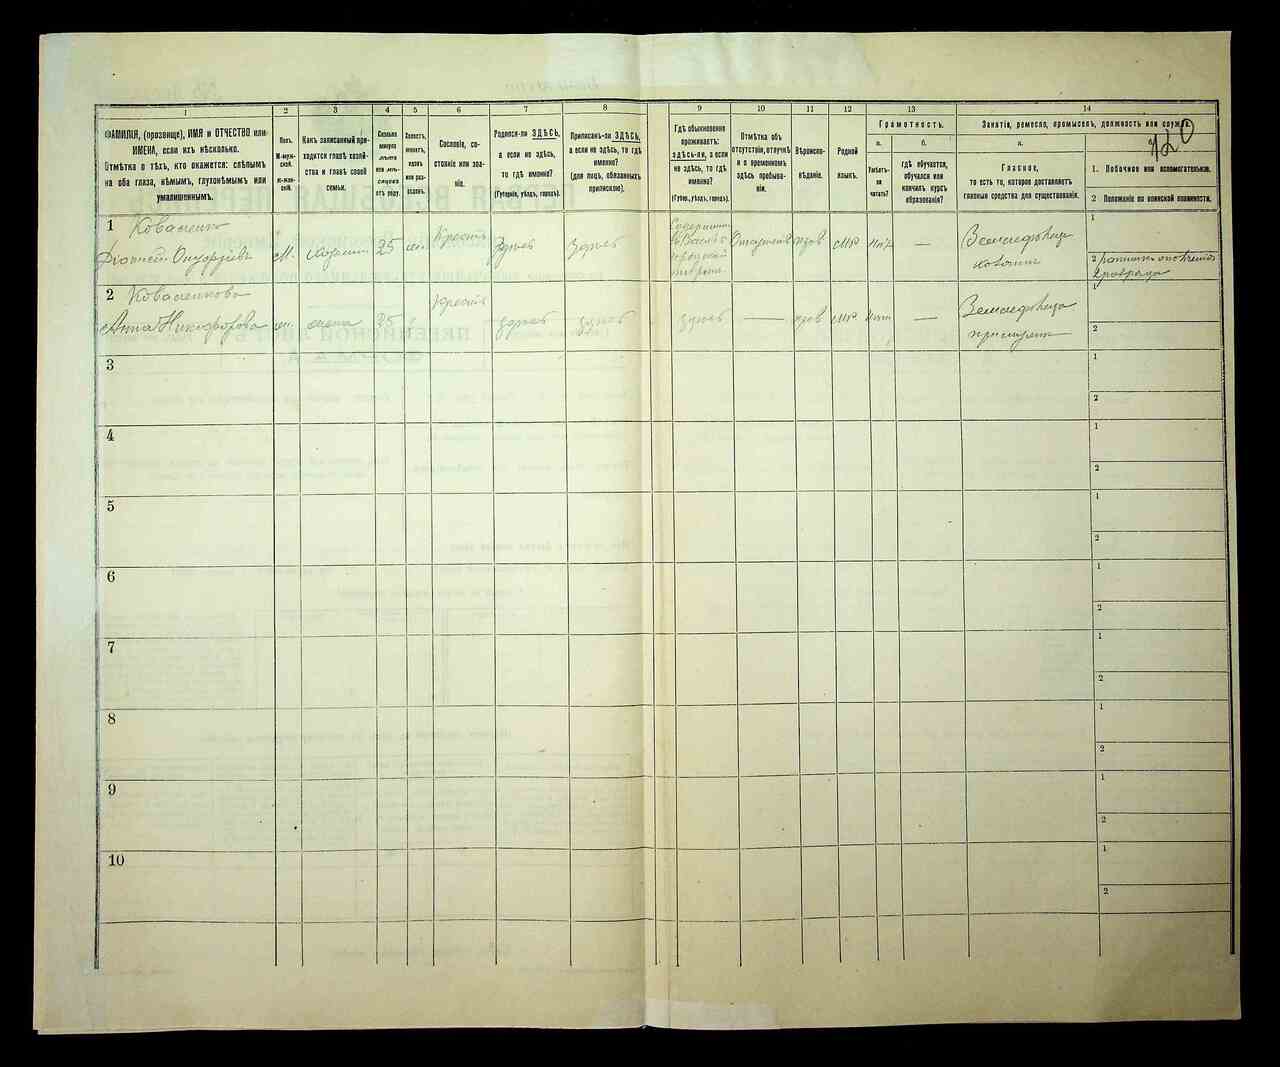 1 2 3 4 5 6 7 8 9 10 11 12 13 14
ФАМИЛІЯ, (прозвище), ИМЯ и ОТЧЕСТВО или
ИМЕНА, если ихъ нѣсколько.
Отмѣтка о тѣхъ, кто окажется: слѣпымъ
на оба глаза, нѣмымъ, глухонѣмымъ или
умалишеннымъ.
Полъ.
М-муж-
ской.
Ж-жен-
скій.
Какъ записанный при-
ходится главѣ хозяй-
ства и главѣ своей
семьи.
Сколько
минуло
лѣтъ
или мѣ-
сяцевъ
отъ роду.
Холостъ,
женатъ,
вдовъ
или раз-
веденъ.
Сословіе, со-
стояніе или зва-
ніе.
Родился-ли ЗДѢСЬ,
а если не здѣсь,
то гдѣ именно?
(Губернія, уѣздъ, городъ).
Приписанъ-ли ЗДѢСЬ,
а если не здѣсь, то гдѣ
именно?
(для лицъ, обязанныхъ
припискою).
Гдѣ обыкновенно
проживаетъ:
здѣсь-ли, а если
не здѣсь, то гдѣ
именно?
(Губер., уѣздъ, городъ).
Отмѣтка объ
отсутствіи, отлучкѣ
и о временномъ
здѣсь пребыва-
ніи.
Вѣроиспо-
вѣданіе.
Родной
языкъ.
Грамотность.
а.
Умѣетъ-
ли
читать?
б.
гдѣ обучается,
обучался или
кончилъ курсъ
образованія?
Занятіе, ремесло, промыселъ, должность или служба.
120
а.
Главное,
то есть то, которое доставляетъ
главныя средства для существованія.
1. Побочное или вспомогательное.
2 Положеніе по воинской повинности.
1 Коваленко
Діонисій Онуфріевъ М. хозяинъ 25 жен. Крест. здѣсь здѣсь
Отсутств. прав мр нѣтъ —
Земледѣлец
хозяинъ
1
2
2 Коваленкова
Анна Никифорова жен. жена 25 Крест. здѣсь здѣсь здѣсь — прав мр нѣтъ —
Земледѣлец
1
2
3 1
2
4 1
2
5 1
2
6 1
2
7 1
2
8 1
2
9 1
2
10 1
2